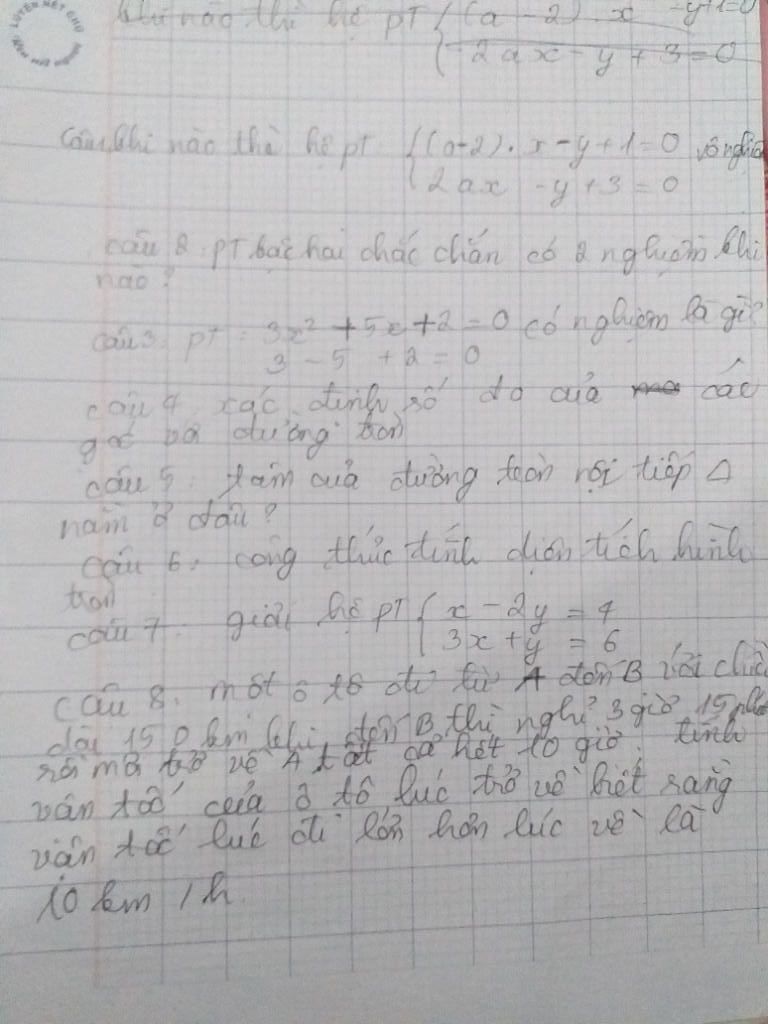 LUYỆN NÉT CHỮ
khi nào thì hệ pT { (a - 2) x - y + 1 = 0
2ax - y + 3 = 0
Câu khi nào thì hệ pt { (a-2). x - y + 1 = 0 vô nghiệ
2ax - y + 3 = 0
Câu 2. PT bậc hai chắc chắn có 2 nghiệm khi
nào?
câu 3. PT : 3x² + 5x + 2 = 0 có nghiệm là gì?
3 - 5 + 2 = 0
câu 4 xác định số đo của các
góc và đường tròn
câu 5. tâm của đường tròn nội tiếp Δ
nằm ở đâu?
câu 6. công thức tính diện tích hình
tròn
câu 7. giải hệ PT { x - 2y = 4
3x + y = 6
câu 8. một ô tô đi từ A đến B với chiều
dài 150 km khi đến B thì nghỉ 3 giờ 15 phú
rồi mới trở về A tất cả hết 10 giờ. tính
vận tốc của ô tô lúc trở về biết rằng
vận tốc lúc đi lớn hơn lúc về là
10 km / h